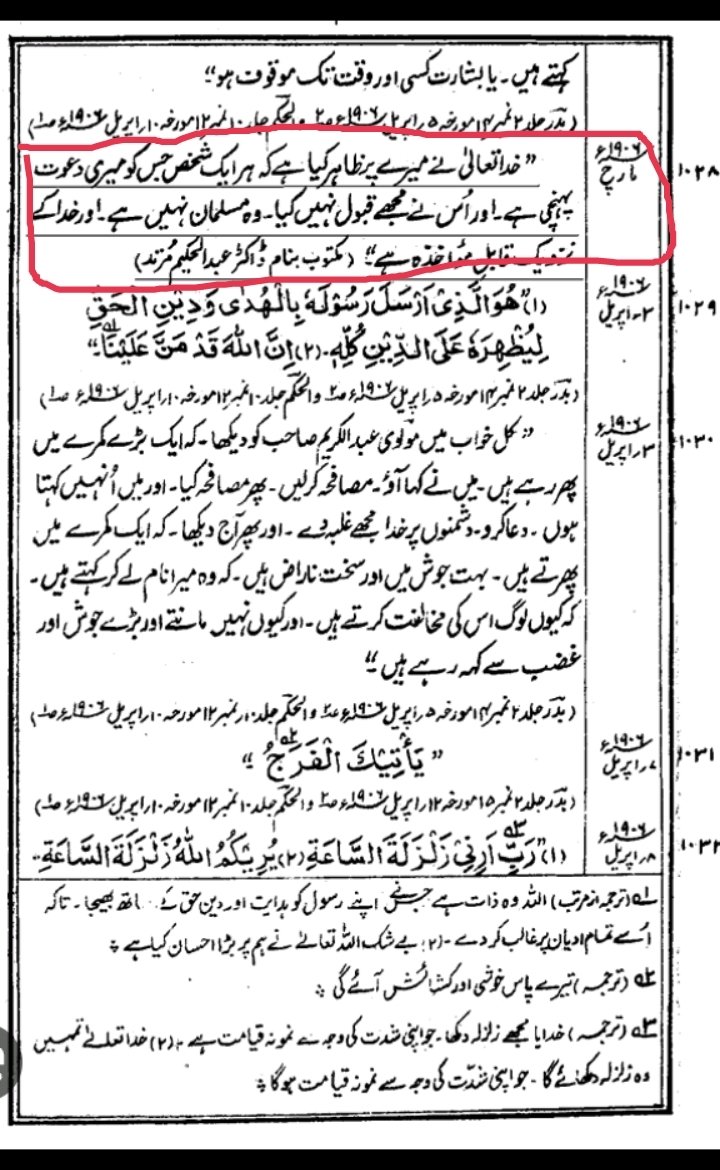 کہتے ہیں۔ یا بشارت کسی اور وقت تک موقوف ہو"
(بدر جلد ۲ نمبر ۱۴ مورخہ ۵ اپریل ۱۹۰۶ء ص۲ والحکم جلد ۱۰ نمبر ۱۲ مورخہ ۱۰ اپریل ۱۹۰۶ء ص۱)
۱۰۲۸
۱۹۰۶ء
مارچ
"خدا تعالیٰ نے میرے پر ظاہر کیا ہے کہ ہر ایک شخص جس کو میری دعوت
پہنچی ہے۔ اور اُس نے مجھے قبول نہیں کیا۔ وہ مسلمان نہیں ہے۔ اور خدا کے
نزدیک قابل مؤاخذہ ہے" (مکتوب بنام ڈاکٹر عبدالحکیم مُرتد)
۱۰۲۹
۱۹۰۶ء
۲۔اپریل
(۱)"هُوَ الَّذِیْ اَرْسَلَ رَسُوْلَهٗ بِالْهُدٰی وَدِیْنِ الْحَقِّ
لِیُظْهِرَهٗ عَلَی الدِّیْنِ کُلِّهٖ۔ (۲) اِنَّ اللّٰهَ قَدْ مَنَّ عَلَیْنَا۔"
(بدر جلد ۲ نمبر ۱۴ مورخہ ۵ اپریل ۱۹۰۶ء ص۲ والحکم جلد ۱۰ نمبر ۱۲ مورخہ ۱۰ اپریل ۱۹۰۶ء ص۱)
۱۰۳۰
۱۹۰۶ء
۳۔اپریل
"کل خواب میں مولوی عبدالکریم صاحب کو دیکھا۔ کہ ایک بڑے کمرے میں
پھر رہے ہیں۔ میں نے کہا آؤ۔ مصافحہ کرلیں۔ پھر مصافحہ کیا۔ اور میں اُنہیں کہتا
ہوں۔ دعا کرو۔ دشمنوں پر خدا مجھے غلبہ دے۔ اور پھر آج دیکھا۔ کہ ایک کمرے میں
پھرتے ہیں۔ بہت جوش میں اور سخت ناراض ہیں۔ کہ وہ میرا نام لے کر کہتے ہیں۔
کہ کیوں لوگ اس کی مخالفت کرتے ہیں۔ اور کیوں نہیں مانتے اور بڑے جوش اور
غضب سے کہہ رہے ہیں"
(بدر جلد ۲ نمبر ۱۴ مورخہ ۵ اپریل ۱۹۰۶ء ص۲ والحکم جلد ۱۰ نمبر ۱۲ مورخہ ۱۰ اپریل ۱۹۰۶ء ص۱)
۱۰۳۱
۱۹۰۶ء
۷۔اپریل
"یَأْتِیْكَ الْفَرَجُ"
(بدر جلد ۲ نمبر ۱۵ مورخہ ۱۲ اپریل ۱۹۰۶ء ص۲ والحکم جلد ۱۰ نمبر ۱۲ مورخہ ۱۰ اپریل ۱۹۰۶ء ص۱)
۱۰۳۲
۱۹۰۶ء
۸۔اپریل
(۱)"رَبِّ اَرِنِیْ زَلْزَلَةَ السَّاعَةِ (۲) یُرِیْكُمُ اللّٰهُ زَلْزَلَةَ السَّاعَةِ۔
۱ (ترجمہ از مرتب) اللہ وہ ذات ہے جس نے اپنے رسول کو ہدایت اور دین حق کے ساتھ بھیجا۔ تاکہ
اُسے تمام ادیان پر غالب کر دے۔ (۲) بے شک اللہ تعالے نے ہم پر بڑا احسان کیا ہے
۲ (ترجمہ) تیرے پاس خوشی اور کشائش آئے گی
۳ (ترجمہ) خدایا مجھے زلزلہ دکھا۔ جو اپنی شدت کی وجہ سے نمونہ قیامت ہے۔ (۲) خدا تعلے تمہیں
وہ زلزلہ دکھائے گا۔ جو اپنی شدّت کی وجہ سے نمونہ قیامت ہوگا